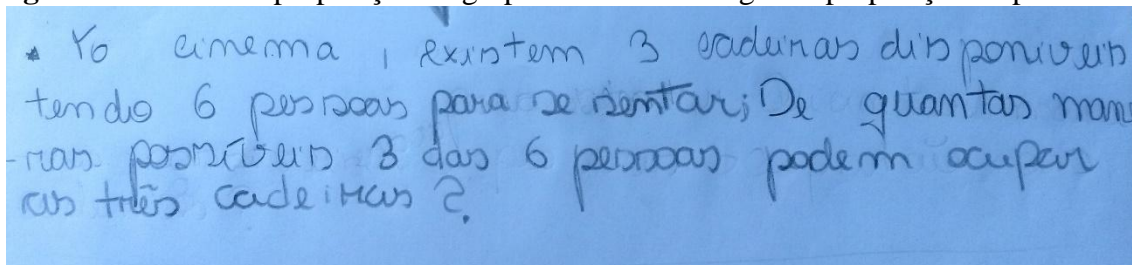 No cinema, existem 3 cadeiras disponiveis
tendo 6 pessoas para se sentar; De quantas manei
-ras possíveis 3 das 6 pessoas podem ocupar
as três cadeiras?